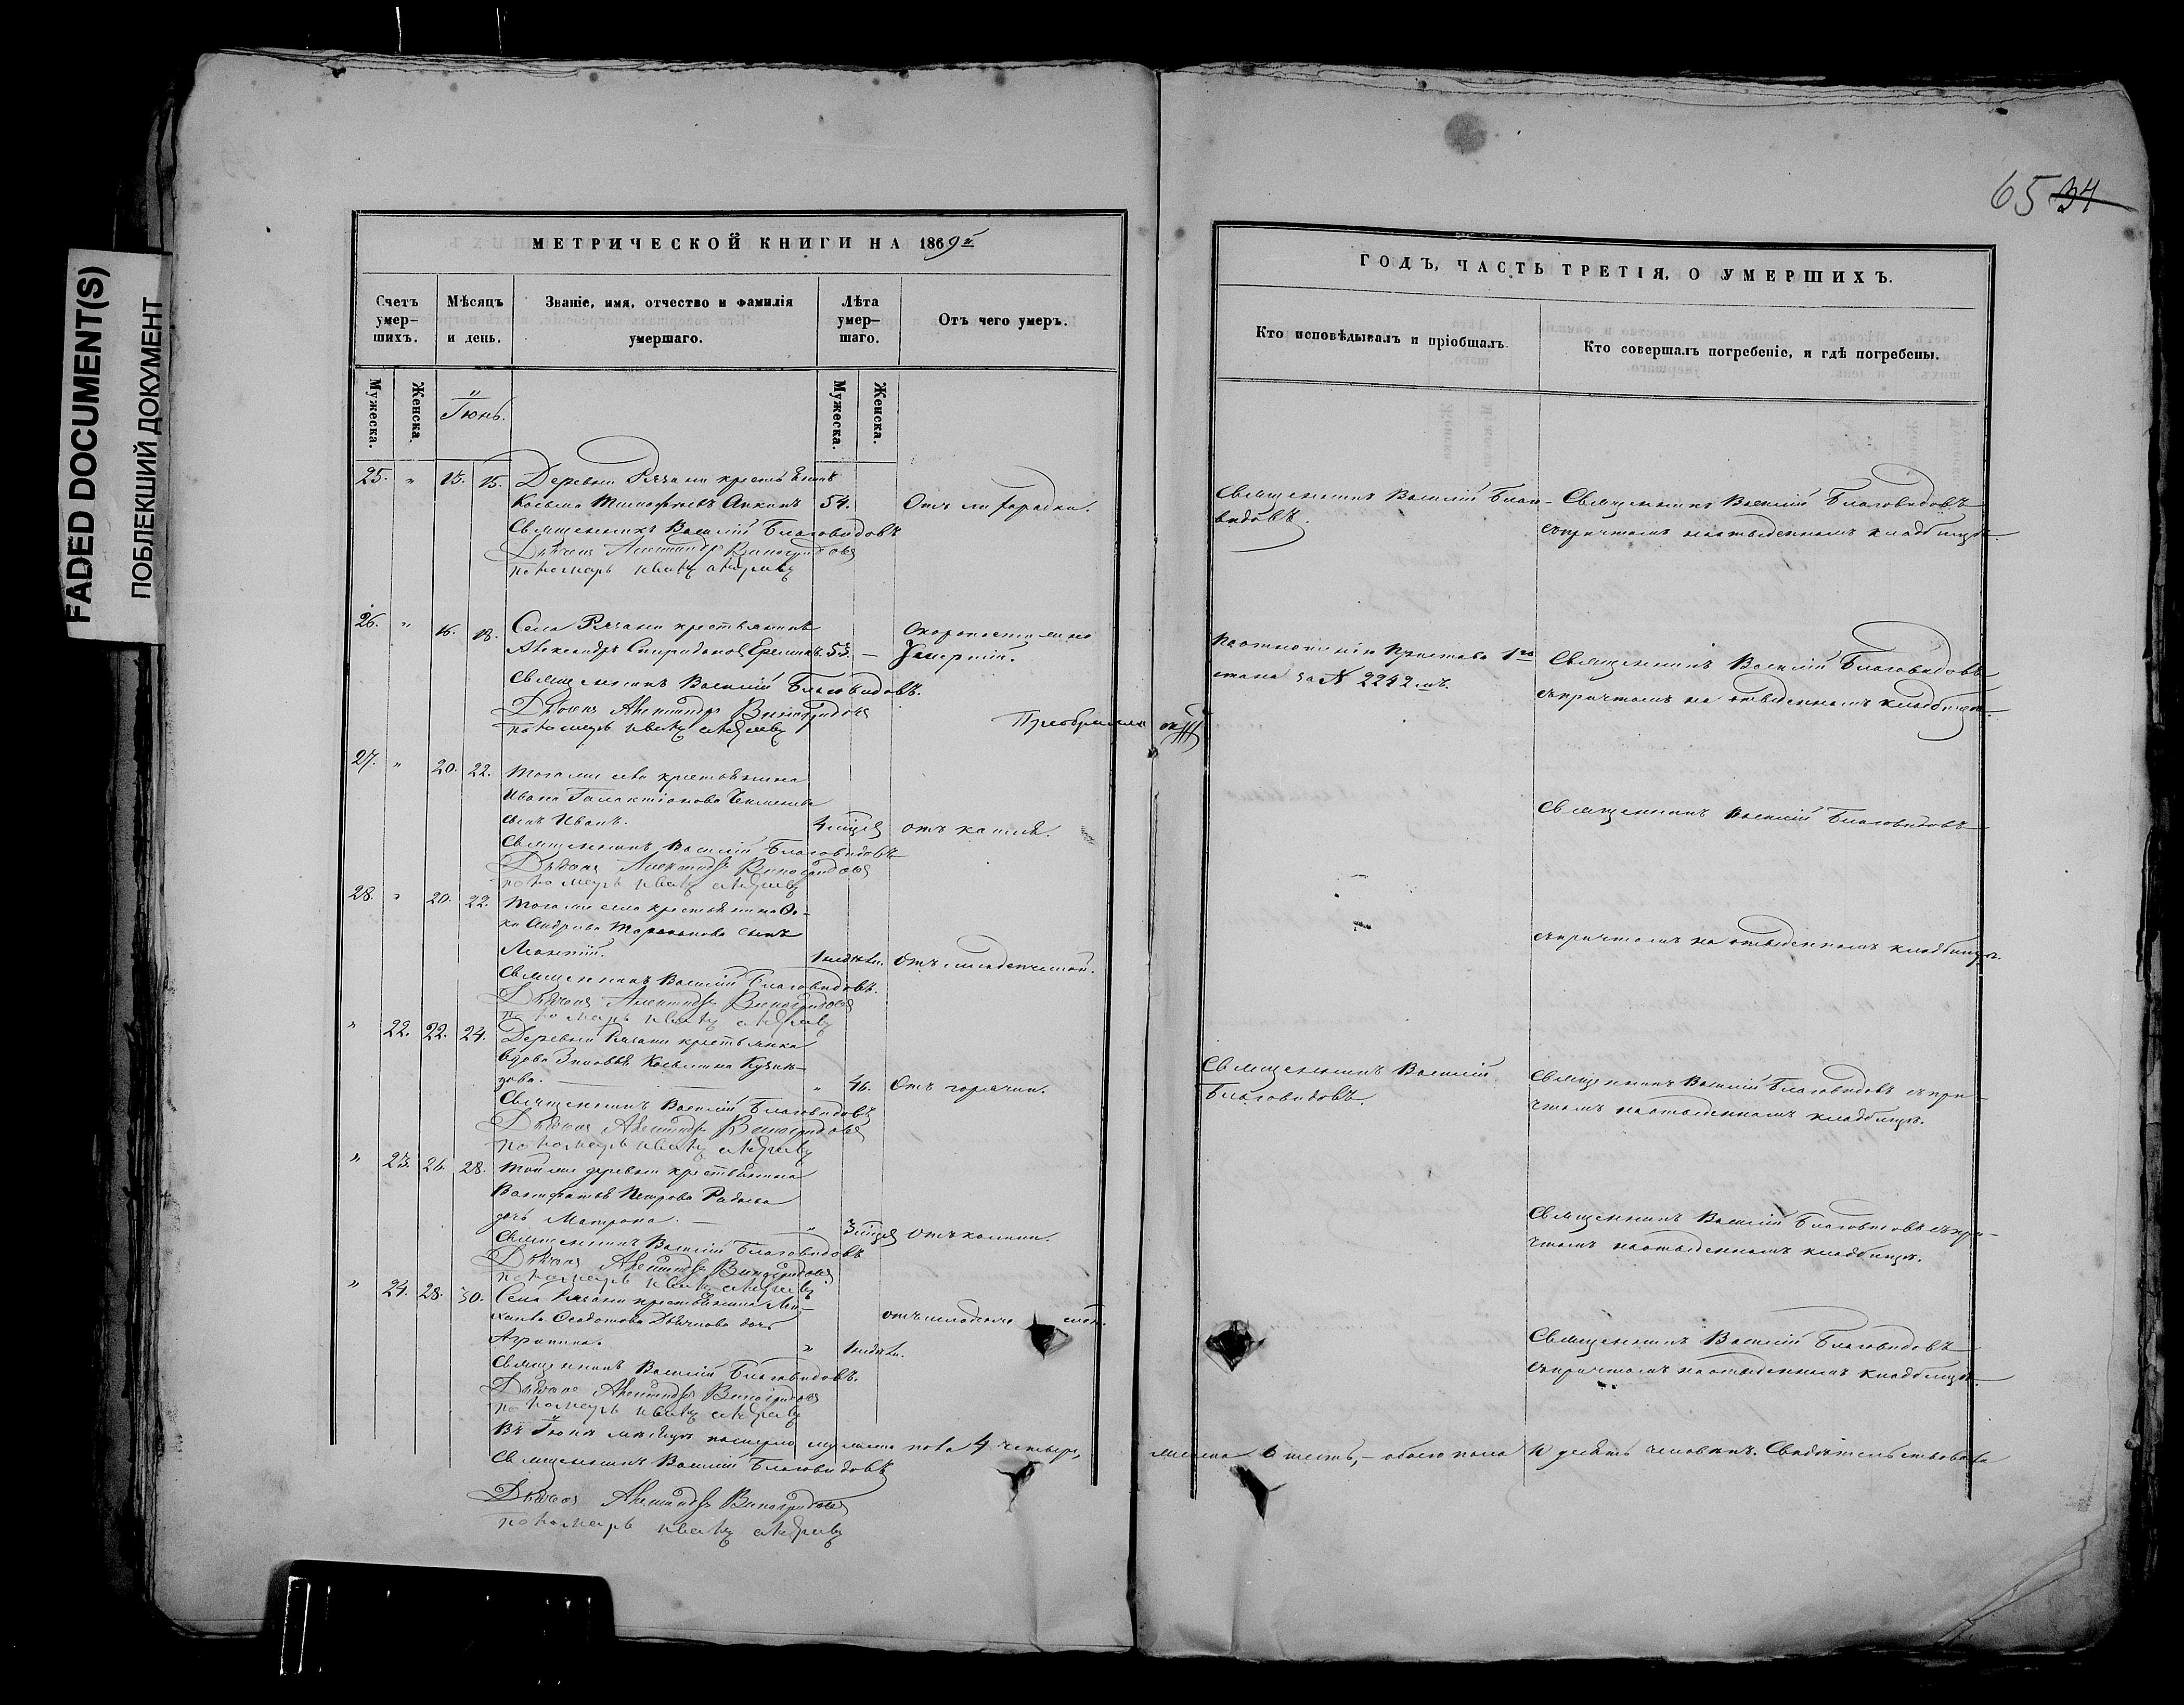 FADED DOCUMENT(S)
ПОБЛЕКШИЙ ДОКУМЕНТ
65 34
МЕТРИЧЕСКОЙ КНИГИ НА 1869й
Счетъ умер-шихъ.
Мѣсяцъ и день.
Званіе, имя, отчество и фамилія умершаго.
Лѣта умер-шаго.
Отъ чего умеръ.
Мужеска.
Женска.
Іюнь.
Мужеска.
Женска.
25. " 13. 15. Деревни крестьянинъ
Косьма Тимофеевъ 54. Отъ лихорадки.
Священникъ Василій Благовидовъ
Дьяконъ Александръ Виноградовъ
пономарь Иванъ Андреевъ
26. " 16. 18. Села крестьянинъ Скоропостижно
Александръ Спиридоновъ 53. — Умершій.
Священникъ Василій Благовидовъ.
Дьяконъ Александръ Виноградовъ
пономарь Иванъ Андреевъ
27. " 20. 22. Тогоже села крестьянина
Ивана Галактіонова
сынъ Иванъ. отъ кашля.
Священникъ Василій Благовидовъ
Дьяконъ Александръ Виноградовъ
пономарь Иванъ Андреевъ
28. " 20. 22. Тогоже села крестьянина Ѳо-
ки Андреева сынъ
Леонтій. 1 недѣли. Отъ младенческой.
Священникъ Василій Благовидовъ.
Дьяконъ Александръ Виноградовъ
пономарь Иванъ Андреевъ
" 22. 22. 24. Деревни крестьянка
вдова Косьмина
" 46. Отъ горячки.
Священникъ Василій Благовидовъ
Дьяконъ Александръ Виноградовъ
пономарь Иванъ Андреевъ
" 23. 26. 28. Тойже деревни крестьянина
Петрова
дочь Матрона. — "
Священникъ Василій Благовидовъ
Дьяконъ Александръ Виноградовъ
пономарь Иванъ Андреевъ
" 24. 28. 30. Села крестьянина Ми-
хаила Ѳедотова дочь отъ младенческой.
Агрипина. " 1 недѣли.
Священникъ Василій Благовидовъ.
Дьяконъ Александръ Виноградовъ
пономарь Иванъ Андреевъ
Въ Іюнѣ мѣсяцѣ померло мужеска пола 4 четыре,
Священникъ Василій Благовидовъ
Дьяконъ Александръ Виноградовъ
пономарь Иванъ Андреевъ
ГОДЪ, ЧАСТЬ ТРЕТІЯ, О УМЕРШИХЪ.
Кто исповѣдывалъ и пріобщалъ.
Кто совершалъ погребеніе, и гдѣ погребены.
Священникъ Василій Благо-
видовъ.
Священникъ Василій Благовидовъ
съ причтомъ на отведенномъ кладбищѣ.
По отношенію Пристава 1го
стана за № 2242мъ.
Священникъ Василій Благовидовъ
съ причтомъ на отведенномъ кладбищѣ.
Священникъ Василій Благовидовъ
съ причтомъ на отведенномъ кладбищѣ.
Священникъ Василій
Благовидовъ.
Священникъ Василій Благовидовъ съ при-
чтомъ на отведенномъ кладбищѣ.
Священникъ Василій Благовидовъ съ при-
чтомъ на отведенномъ кладбищѣ.
Священникъ Василій Благовидовъ
съ причтомъ на отведенномъ кладбищѣ.
женска 6 шесть, — обоего пола 10 десять человѣкъ. Свидѣтельствовали